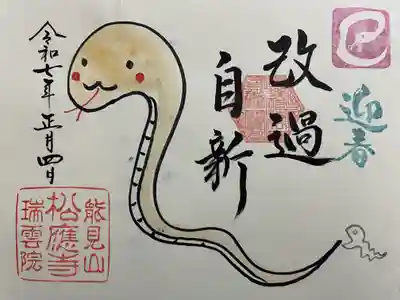 迎春
改過
自新
令和七年 正月四日
能見山
松應寺
瑞雲院